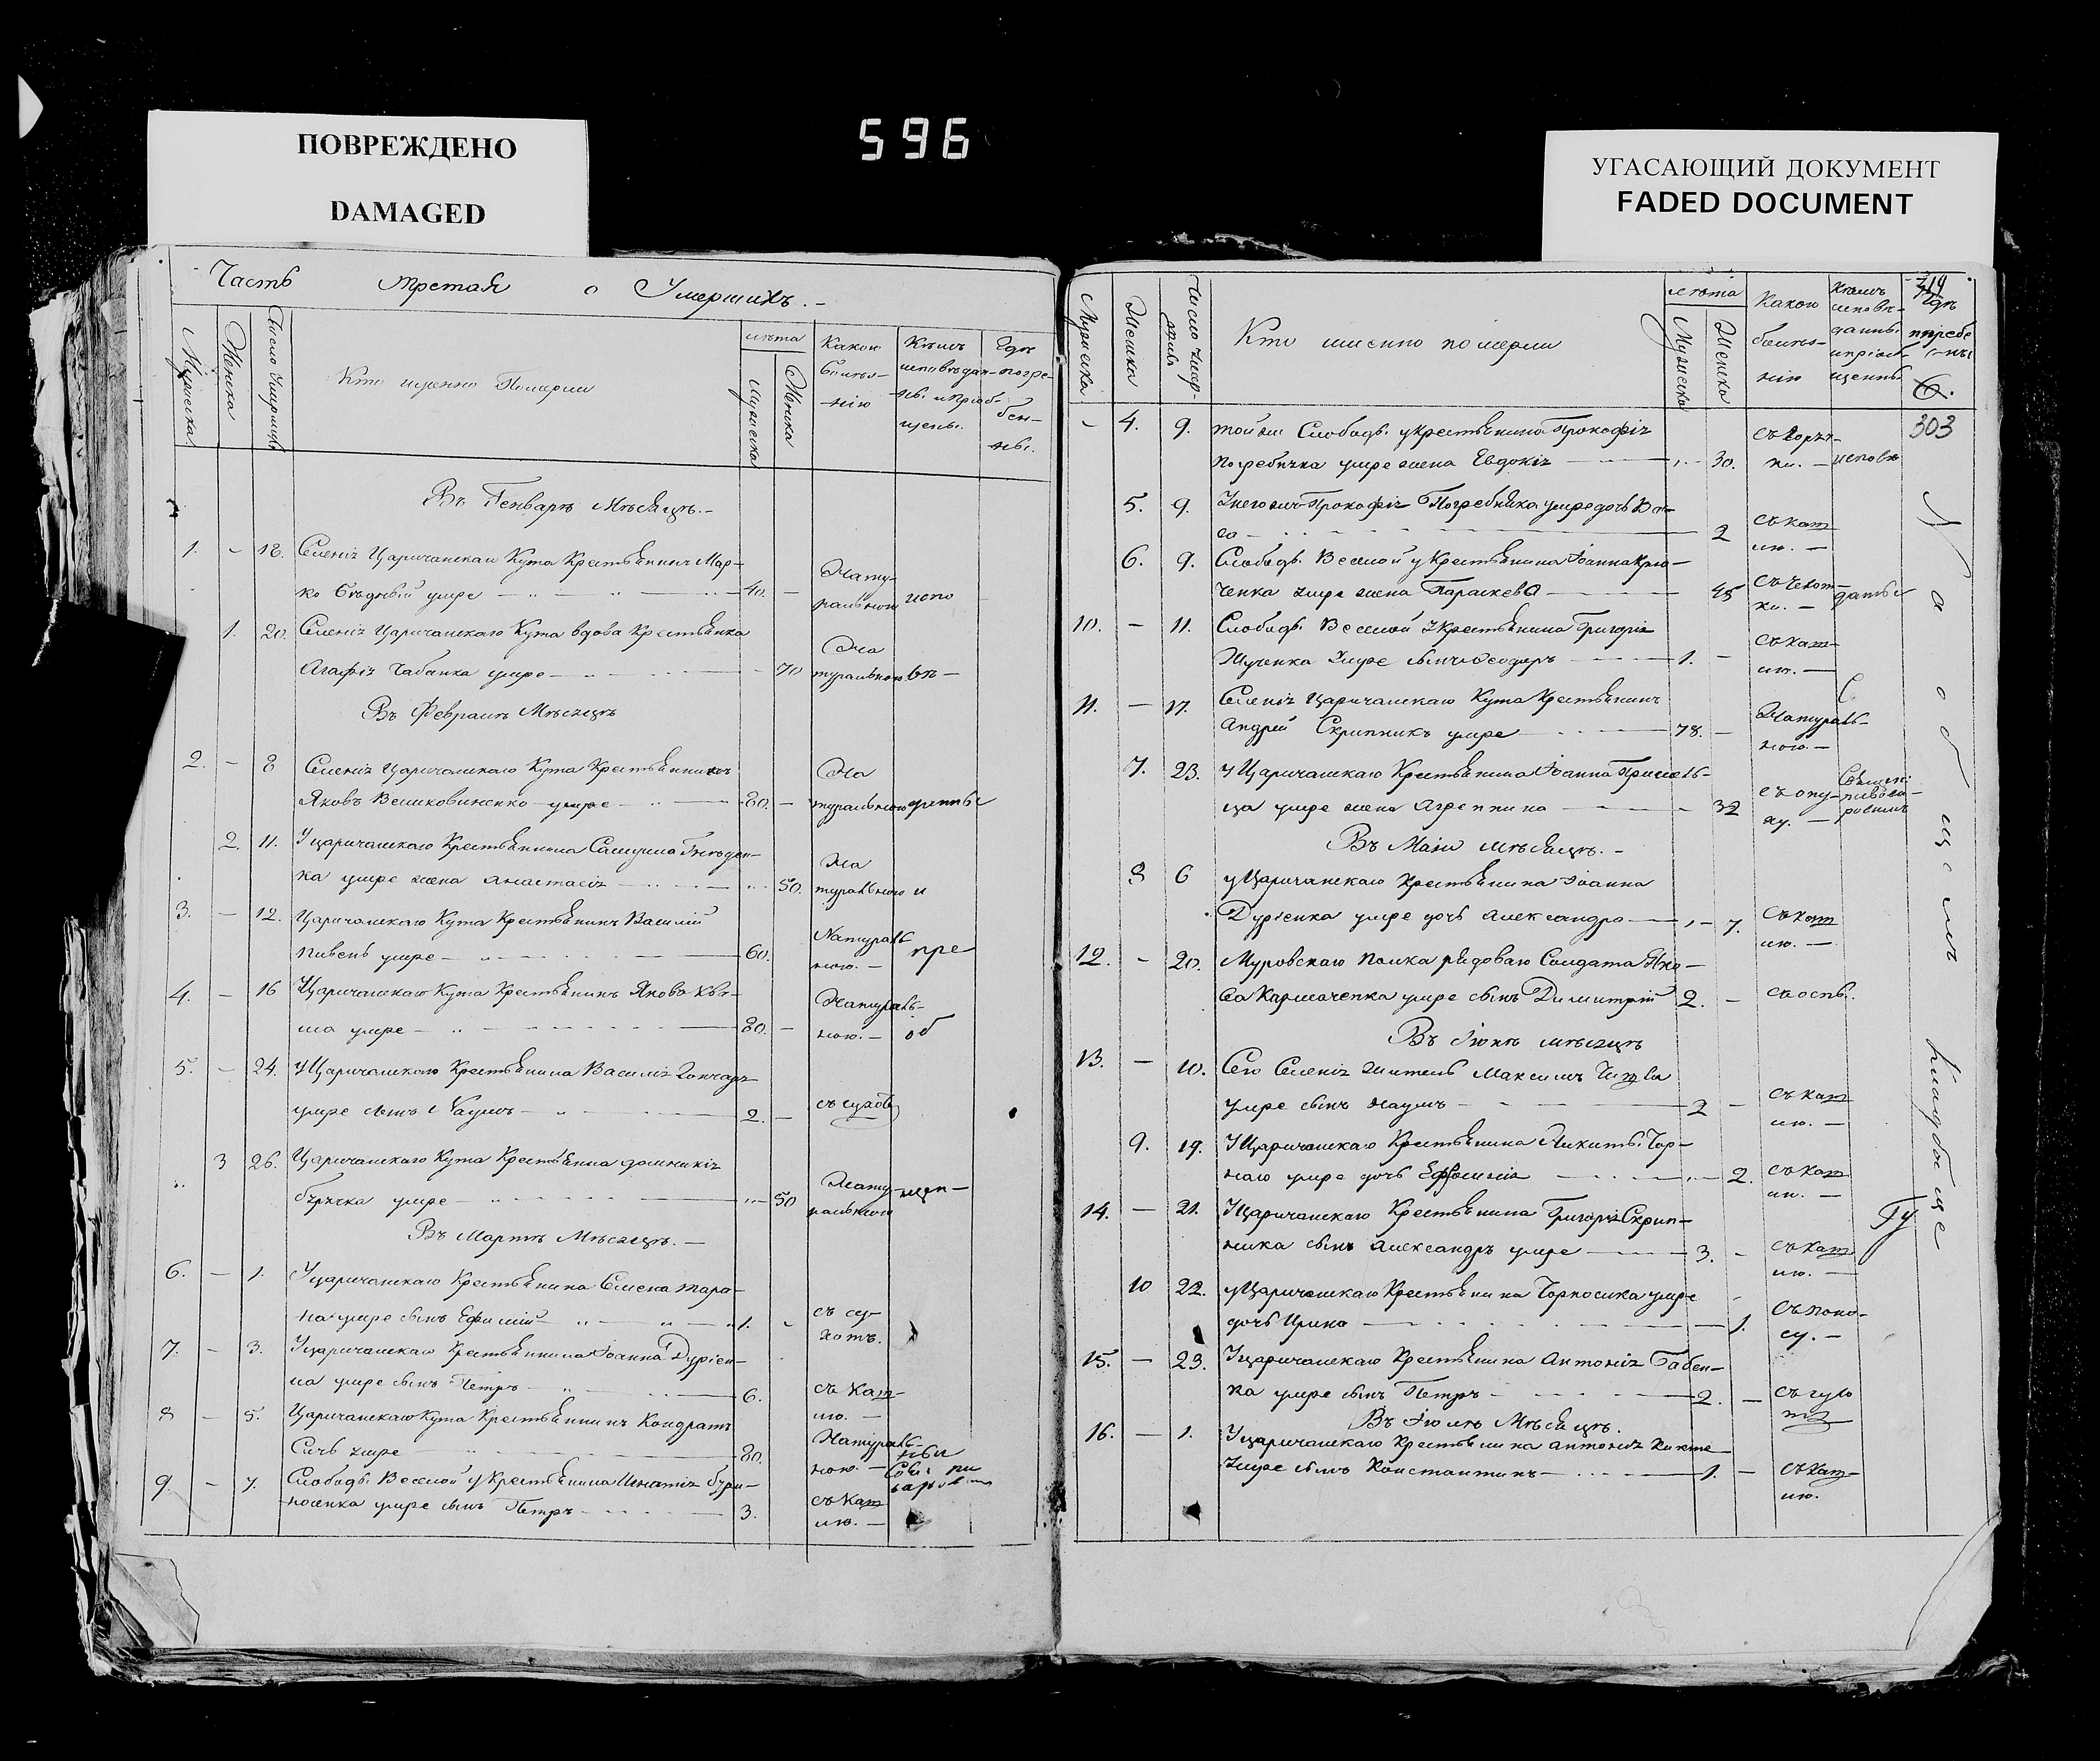 ПОВРЕЖДЕНО
DAMAGED
596
УГАСАЮЩИЙ ДОКУМЕНТ
FADED DOCUMENT
Часть третая о Умершихъ.-
Мужеска
Женска
Число Умершихъ
Кто именно Померли
лѣта
Мужеска
Женска
Какою болѣз-
нію
Кѣмъ исповѣдан-
ны и пріоб-
щены.
Гдѣ погре-
бен-
ны.
Въ Генварѣ Мѣсяцѣ.-
1. - 18. Селенія Царичанскаго Кута Крестьянинъ Мар-
ко Бѣдный умре 40. - Нату-
ральною испо
1. 20. Селенія Царичанскаго Кута вдова Крестьянка
Агафія Чабанка умре - 70 На
туральною вѣ-
Въ Февралѣ Мѣсяцѣ
2. - 8 Селенія Царичанскаго Кута Крестьянинъ
Яковъ Великовиненко умре 80. - На
туральною
2. 11. У царичанскаго Крестьянина Самуила
ка умре жена Анастасія 50. На
туральною и
3. - 12. Царичанскаго Кута Крестьянинъ Василій
Пивень умре 60. Натураль
ною. - пре
4. - 16 Царичанскаго Кута Крестьянинъ Яковъ Кве-
ша умре 80. - Натураль-
ною. - об
5. - 24. У Царичанскаго Крестьянина Василія Гончаря
умре сынъ Наумъ 2. -
3 26. Царичанскаго Кута Крестьянка Домникія
умре 50 Нату-
ральною щен-
Въ Мартѣ Мѣсяцѣ. -
6. - 1. У царичанскаго Крестьянина Семена Тара-
на умре сынъ Ефимій 1. - съ су-
хотъ.
7. - 3. У царичанскаго Крестьянина Іоанна Дуріен-
ка умре сынъ Петръ 6. съ каш-
лю. -
8 - 5. Царичанскаго Кута Крестьянинъ Кондратъ
Сичь умре 80. Натураль-
ною. - ны
9. - 7. Слободы Веселой у Крестьянина Игнатія Бурл-
носенка умре сынъ Петръ 3. съ каш
лю. -
Мужеска
Женска
Число умер-
шихъ
Кто именно померли
лѣта
Мужеска
Женска
Какою
болѣз-
нію
Кѣмъ
исповѣ-
данны
и пріоб-
щенны
314
Гдѣ
погребе
ны
303
- 4. 9. той же Слободы у крестьянина Прокофія
Погребнячка умре жена Евдокія 30. съ горяч-
ки. - исповѣ
5. 9. У него же Прокофія Погребняка умре дочь Ва-
са 2 съ каш
лю. -
6. 9. Слободы Веселой у Крестьянина Іоанна Крю-
ченка умре жена Параскева 45
даны
10. - 11. Слободы Веселой у Крестьянина Григорія
Жученка умре сынъ Феодоръ 1. - съ каш-
лю. -
11. - 17. Селенія Царичанскаго Кута Крестьянинъ
Андрей Скрипникъ умре 78. - Натураль-
ною. -
7. 23. У Царичанскаго Крестьянина Іоанна
ца умре жена Агрепина - 32 съ опу-
ху. -
Въ Маіи мѣсяцѣ. -
8 6 у Царичанскаго Крестьянина Іоанна
Дуріенка умре дочь Александра 7. съ каш
лю. -
12. - 20. Муровскаго полка рядоваго Солдата Яко-
ва Кармаченка умре сынъ Димитрій 2. - съ оспы.
Въ Іюнѣ мѣсяцѣ
13. - 10. Сего Селенія житель Максимъ
умре сынъ Наумъ 2 - съ каш
лю. -
9. 19. У Царичанскаго Крестьянина Никиты Чор-
наго умре дочь 2. съ каш
лю. -
14. - 21. У Царичанскаго Крестьянина Григорія Скрип-
ника сынъ Александръ умре 3. - съ каш
лю. -
10 22. у Царичанскаго Крестьянина Чорносика умре
дочь Ирина 1. съ поно-
су. -
15. - 23. У царичанскаго Крестьянина Антонія Бабен-
ка умре сынъ Петръ 2. -
Въ Іюлѣ Мѣсяцѣ.
16. - 1. У царичанскаго Крестьянина Антонія
умре сынъ Константинъ 1. - съ каш-
лю.
На общемъ кладбище